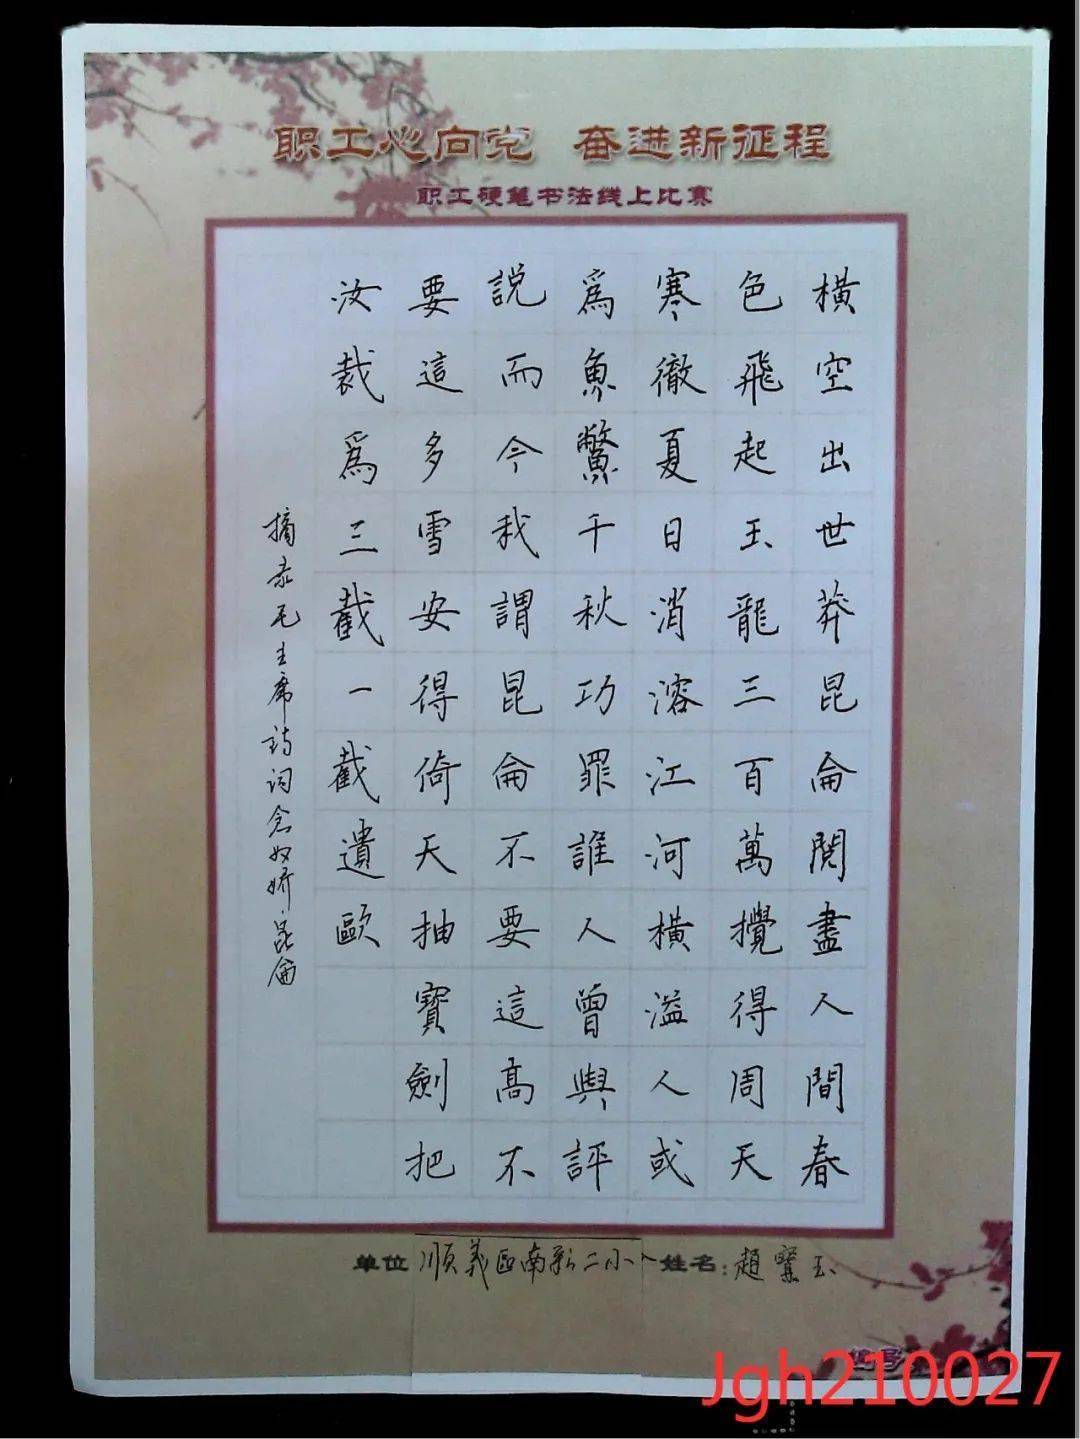 职工心向党 奋进新征程
职工硬笔书法线上比赛
橫空出世莽昆侖閱盡人間春
色飛起玉龍三百萬攪得周天
寒徹夏日消溶江河橫溢人或
為魚鱉千秋功罪誰人曾與評
説而今我謂昆侖不要這高不
要這多雪安得倚天抽寶劍把
汝裁爲三截一截遺歐
摘录毛主席诗词念奴娇·昆侖
单位 順義区南彩二小 姓名:趙寶玉
编号
Jgh210027